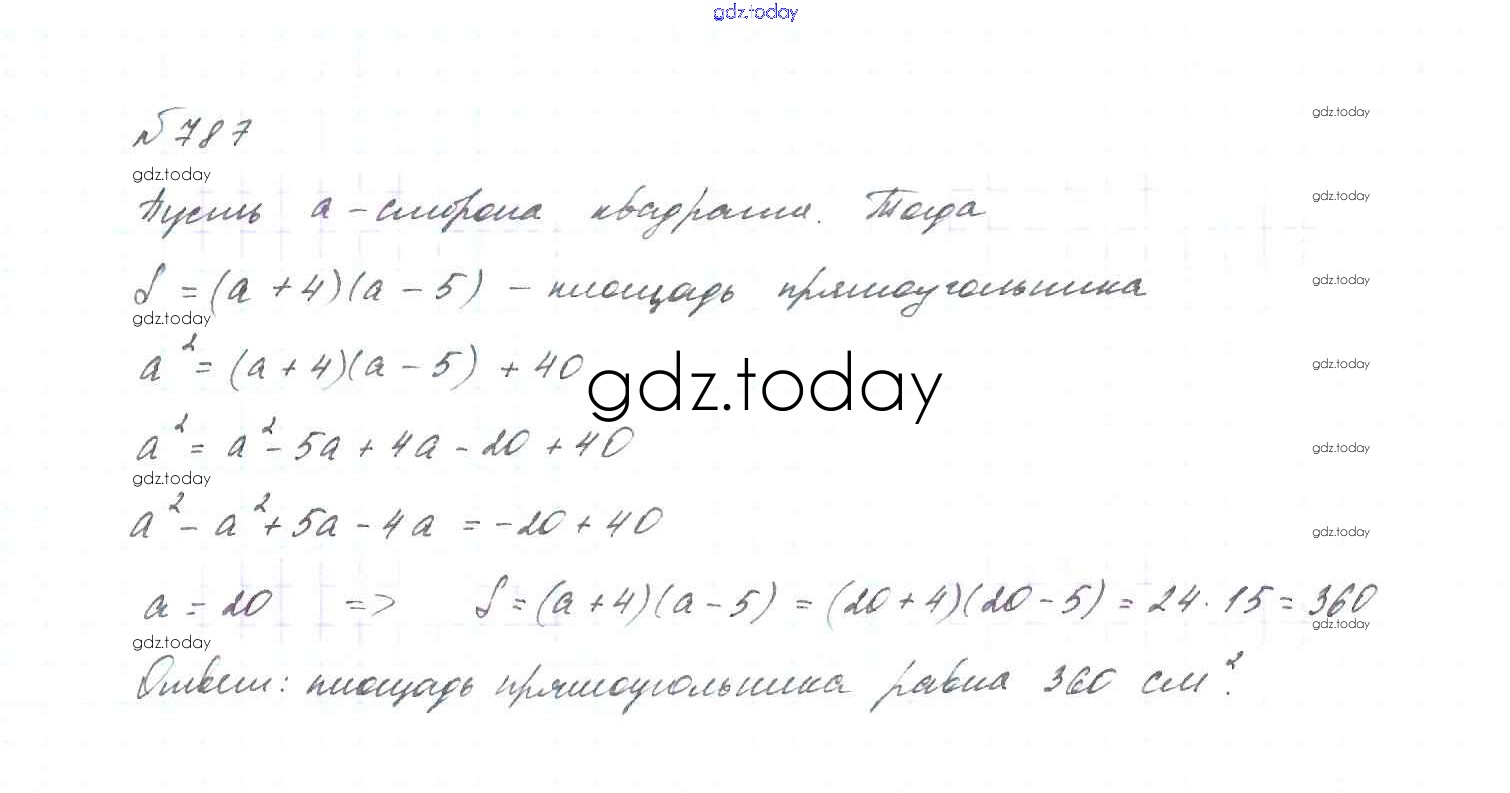 gdz.today
№ 787
gdz.today
gdz.today
Пусть a - сторона квадрата. Тогда
gdz.today
S = (a + 4)(a - 5) - площадь прямоугольника
gdz.today
gdz.today
a² = (a + 4)(a - 5) + 40
gdz.today
gdz.today
a² = a² - 5a + 4a - 20 + 40
gdz.today
gdz.today
a² - a² + 5a - 4a = -20 + 40
gdz.today
a = 20 => S = (a + 4)(a - 5) = (20 + 4)(20 - 5) = 24 · 15 = 360
gdz.today
gdz.today
Ответ: площадь прямоугольника равна 360 см².